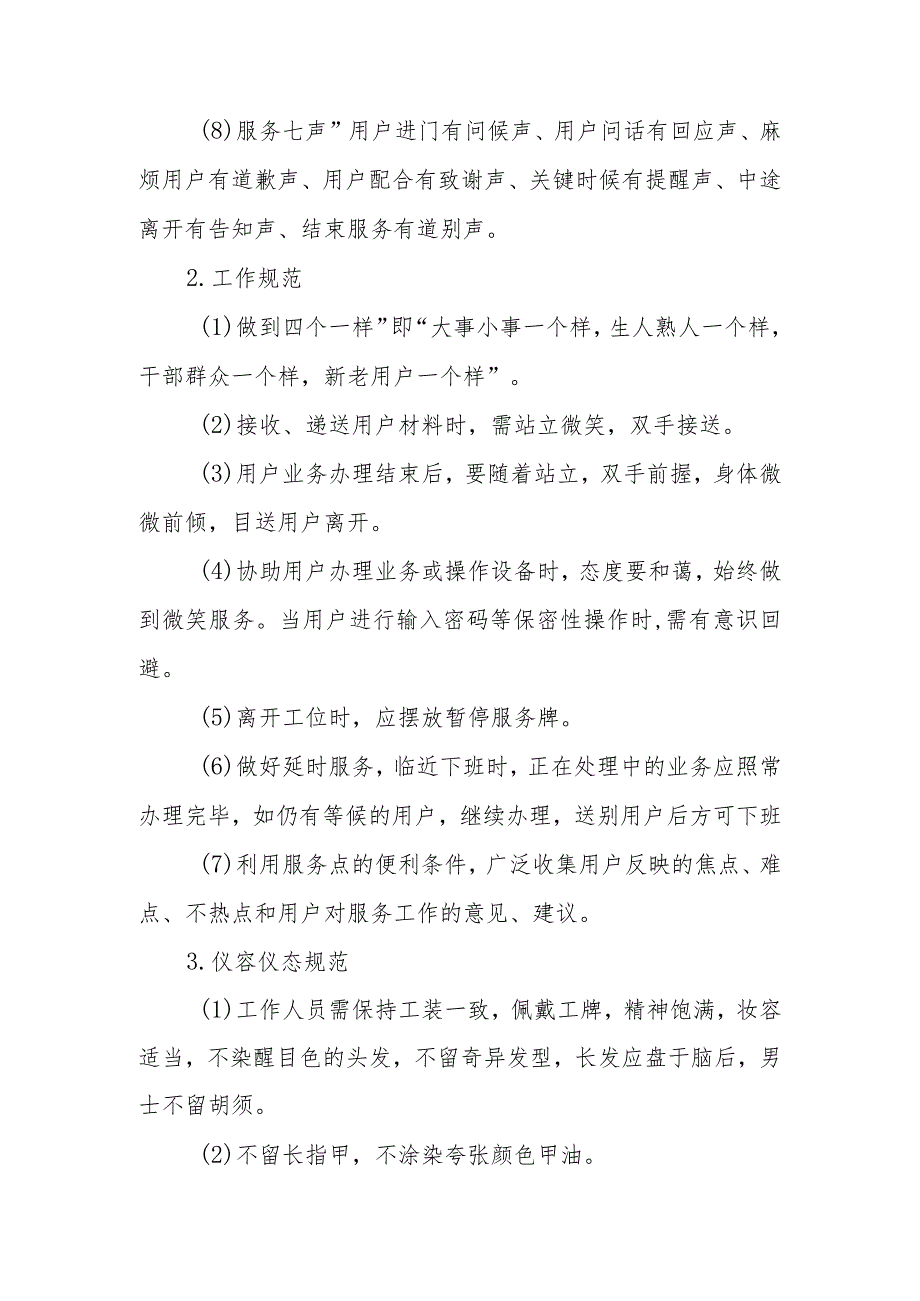 (8)服务七声”用户进门有问候声、用户问话有回应声、麻
烦用户有道歉声、用户配合有致谢声、关键时候有提醒声、中途
离开有告知声、结束服务有道别声。
2.工作规范
(1)做到四个一样”即“大事小事一个样,生人熟人一个样,
干部群众一个样，新老用户一个样”。
(2)接收、递送用户材料时，需站立微笑，双手接送。
(3)用户业务办理结束后，要随着站立，双手前握，身体微
微前倾，目送用户离开。
(4)协助用户办理业务或操作设备时，态度要和蔼,始终做
到微笑服务。当用户进行输入密码等保密性操作时,需有意识回
避。
(5)离开工位时，应摆放暂停服务牌。
(6)做好延时服务，临近下班时，正在处理中的业务应照常
办理完毕，如仍有等候的用户，继续办理，送别用户后方可下班
(7)利用服务点的便利条件，广泛收集用户反映的焦点、难
点、不热点和用户对服务工作的意见、建议。
3.仪容仪态规范
(1)工作人员需保持工装一致，佩戴工牌，精神饱满，妆容
适当，不染醒目色的头发，不留奇异发型，长发应盘于脑后，男
士不留胡须。
(2)不留长指甲，不涂染夸张颜色甲油。